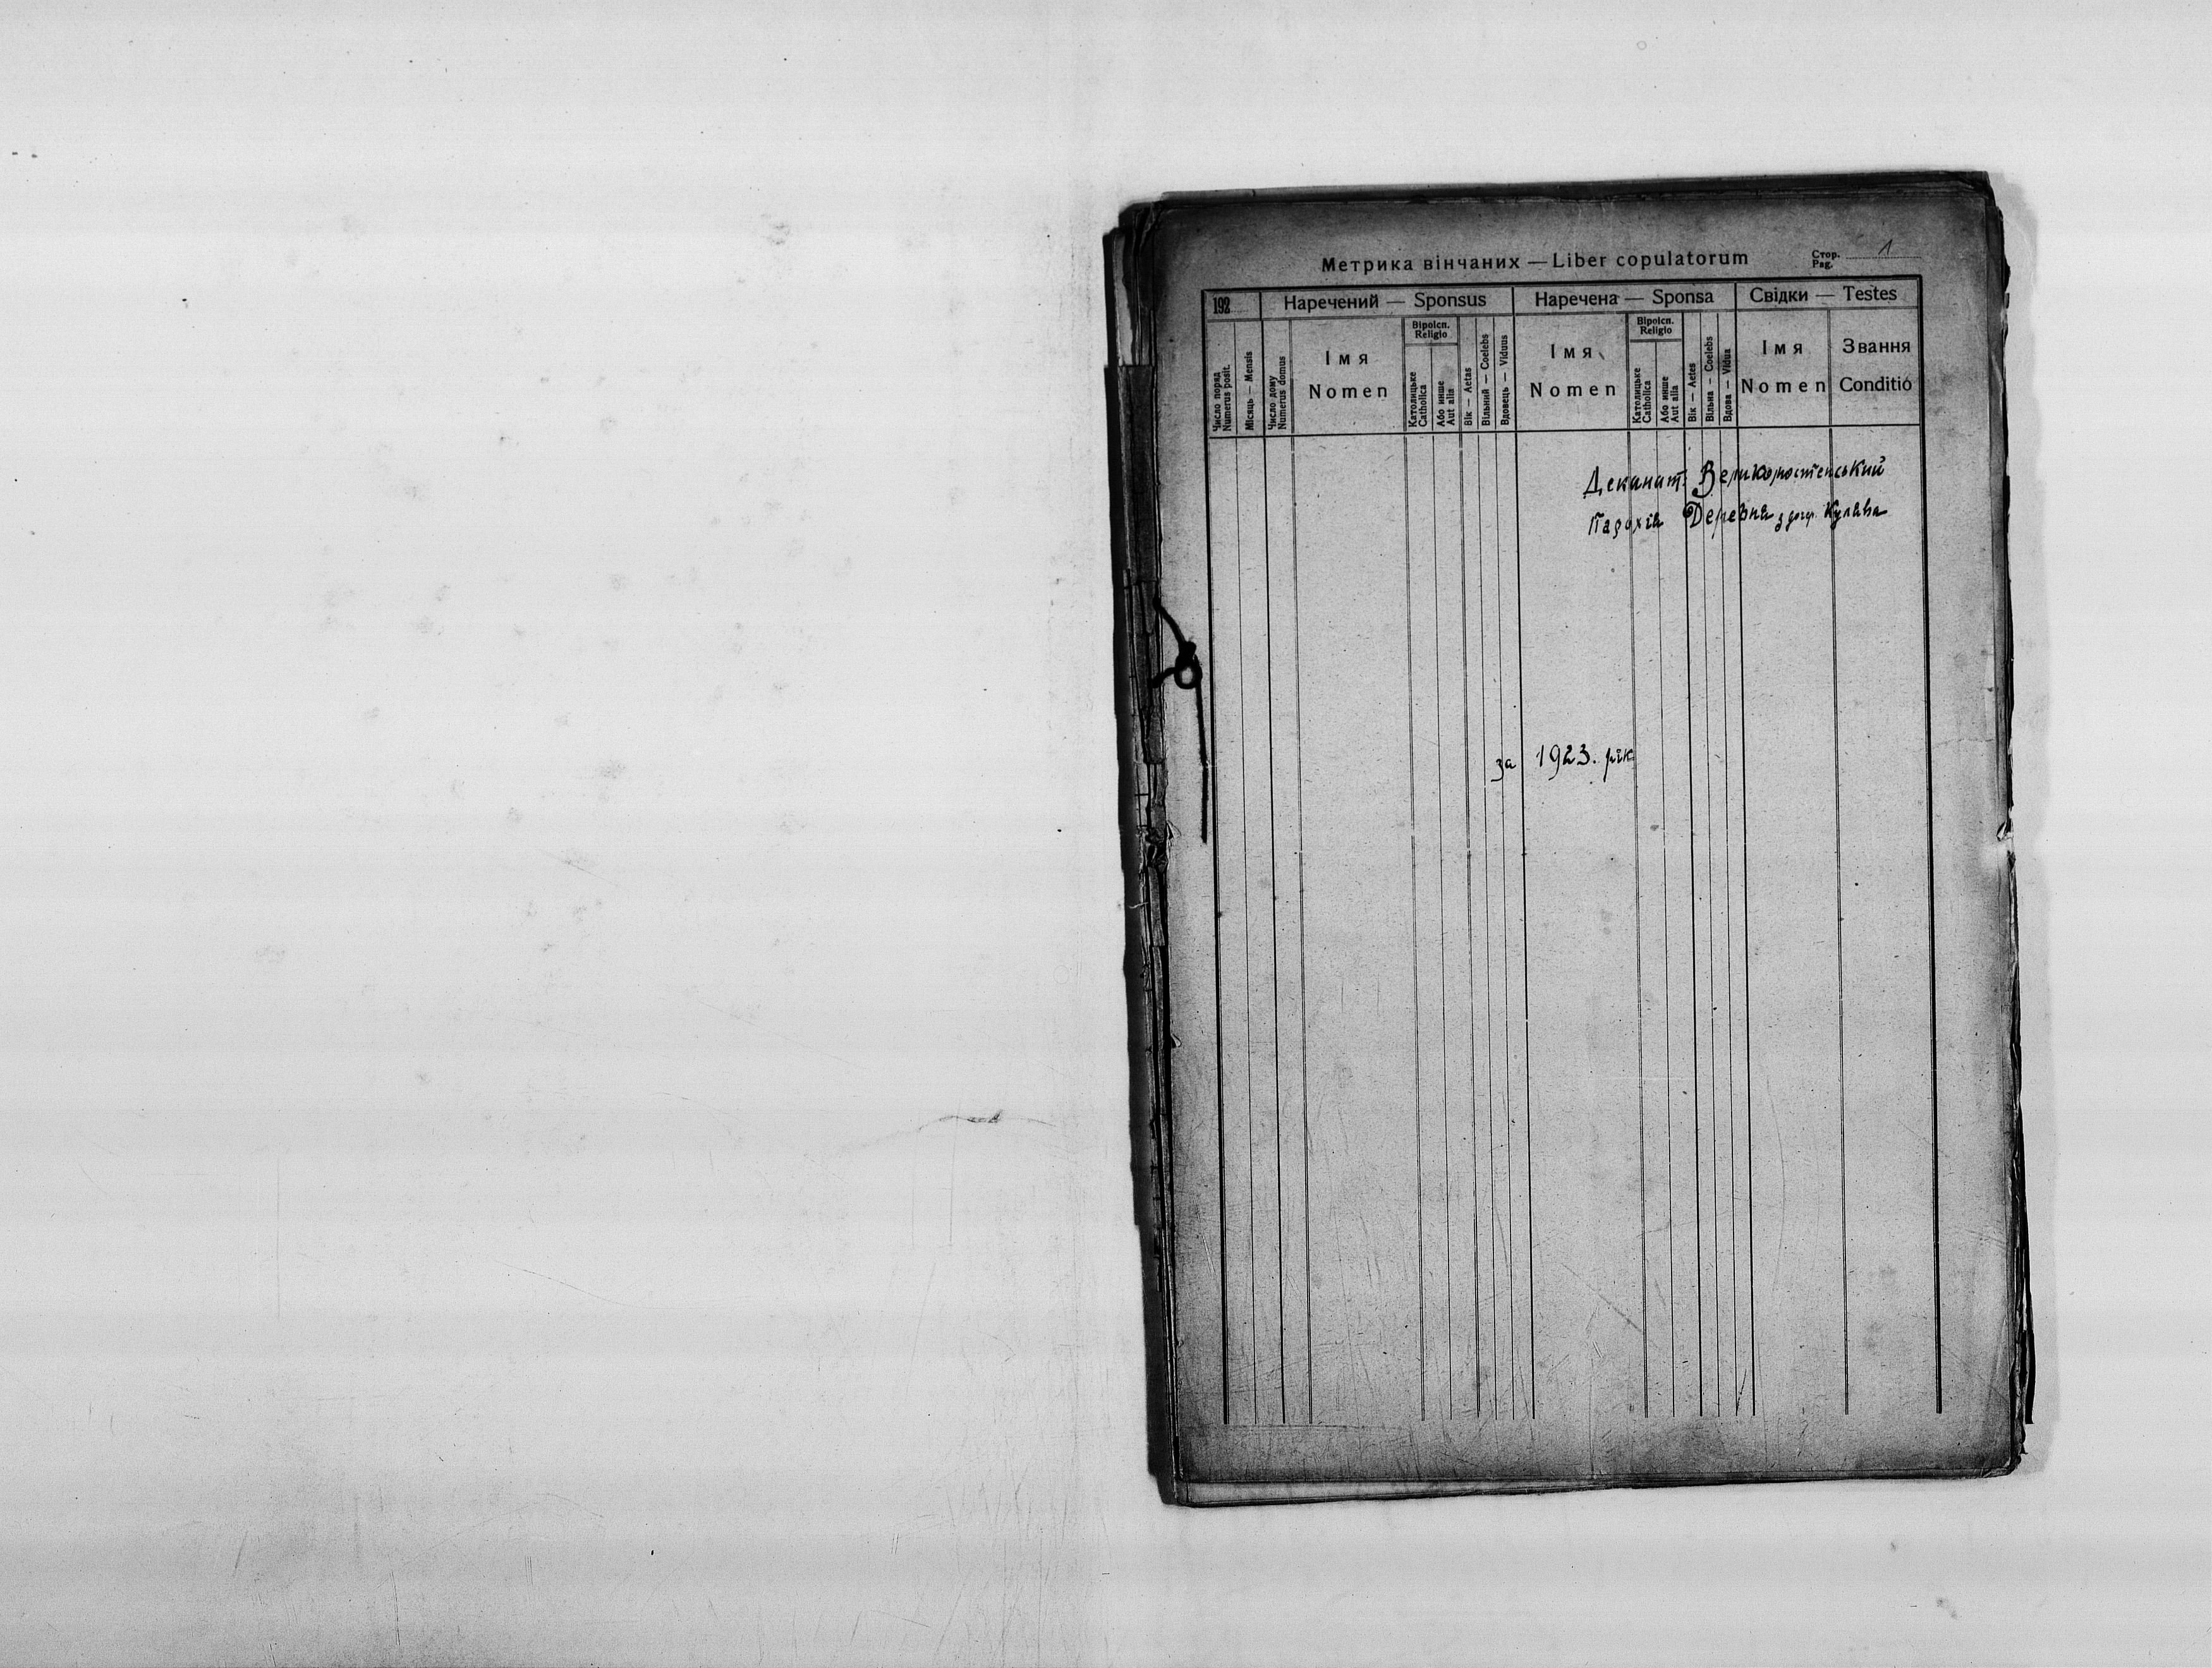 Метрика вінчаних — Liber copulatorum
Стор. 1
Pag.
192
Наречений — Sponsus
Наречена — Sponsa
Свідки — Testes
Число поряд
Numerus posit.
Місяць — Mensis
Число дому
Numerus domus
Імя
Nomen
Віроісп.
Religio
Католицьке
Catholica
Або инше
Aut alia
Вік — Aetas
Вільний — Coelebs
Вдовець — Viduus
Імя
Nomen
Віроісп.
Religio
Католицьке
Catholica
Або инше
Aut alia
Вік — Aetes
Вільна — Coelebs
Вдова — Vidua
Імя
Nomen
Звання
Conditió
Деканат
Парохія Деревня з доч. Кулава
за 1923. рік